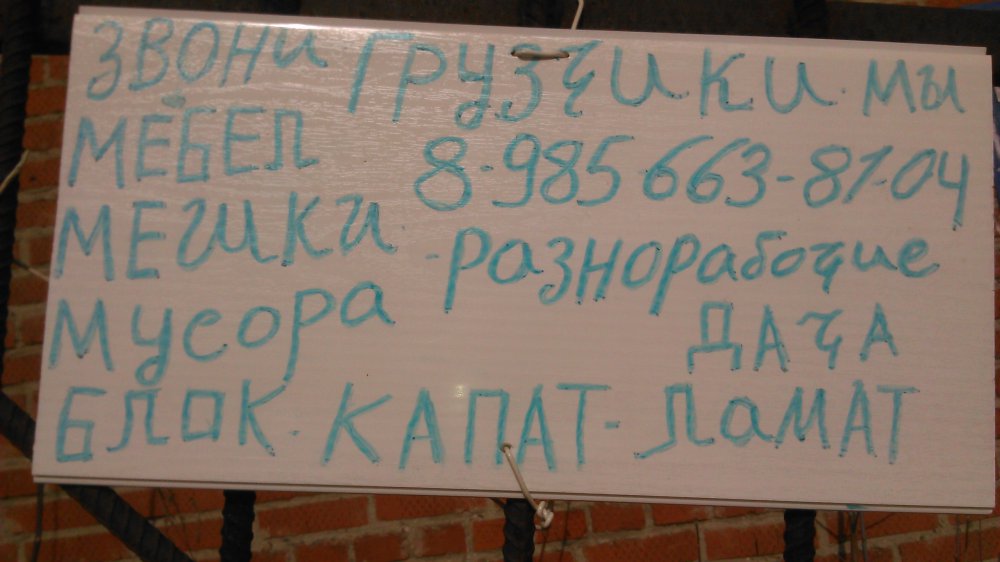 ЗВОНИ ГРУЗЧИКИ. МЫ
МЕБЕЛ 8-985 663-81-04
МЕШКИ -РАЗНОРАБОЧИЕ
МУСОРА ДАЧА
БЛОК. КАПАТ- ЛОМАТ